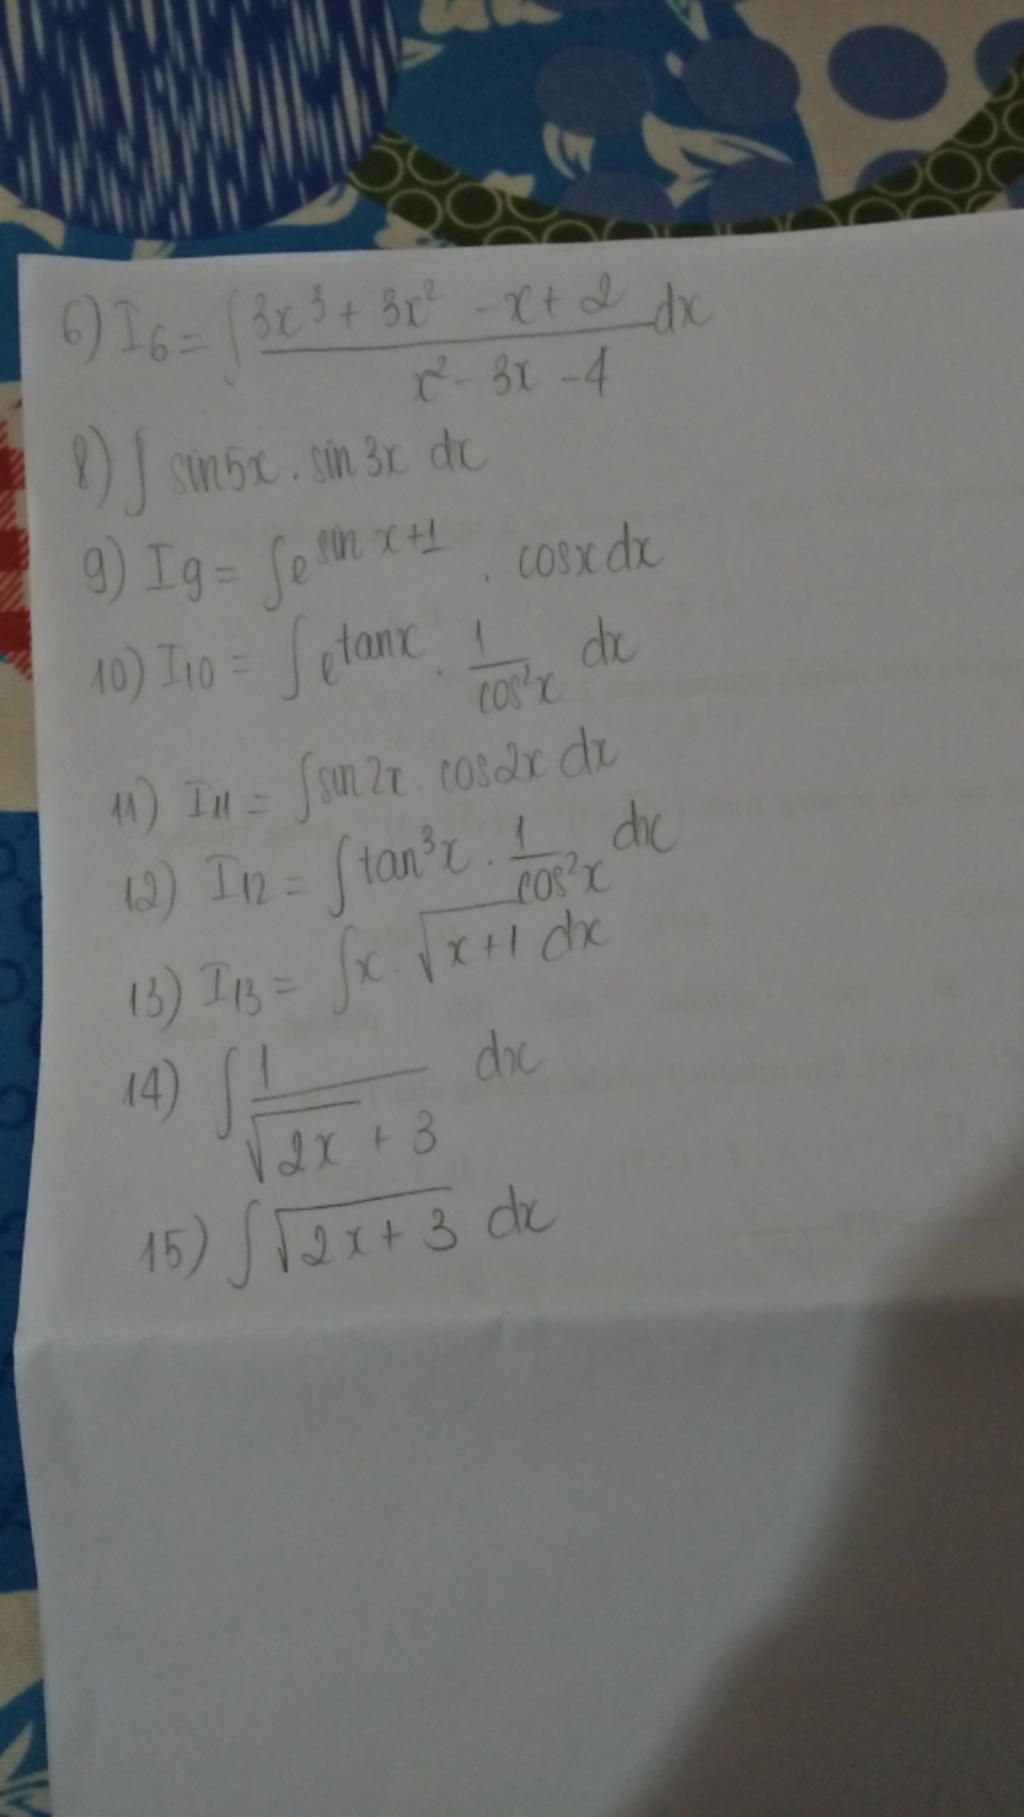 6) I₆ = ∫ (3x³ + 3x² - x + 2)/(x² - 3x - 4) dx
8) ∫ sin5x . sin3x dx
9) I9 = ∫ e^(sin x+1) . cosx dx
10) I₁₀ = ∫ e^(tanx) . 1/cos²x dx
11) I₁₁ = ∫ sin2x . cos2x dx
12) I₁₂ = ∫ tan³x . 1/cos²x dx
13) I₁₃ = ∫ x . √(x+1) dx
14) ∫ 1/(√(2x) + 3) dx
15) ∫ √(2x+3) dx